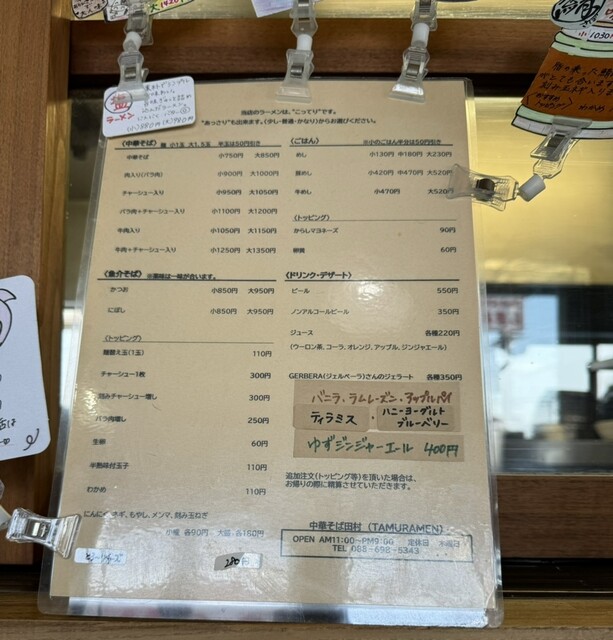 ラーメン
当店のラーメンは、"こってり"です。
"あっさり"も出来ます。(少し・普通・かなり)からお選びください。
〈中華そば〉 麺 小1玉 大1,5玉 半玉は50円引き
中華そば 小750円 大850円
肉入り(バラ肉) 小900円 大1000円
チャーシュー入り 小950円 大1050円
バラ肉+チャーシュー入り 小1100円 大1200円
牛肉入り 小1050円 大1150円
牛肉+チャーシュー入り 小1250円 大1350円
〈魚介そば〉 ※薬味は一味が合います。
かつお 小850円 大950円
にぼし 小850円 大950円
(トッピング)
麺替え玉(1玉) 110円
チャーシュー1枚 300円
刻みチャーシュー増し 300円
バラ肉増し 250円
生卵 60円
半熟味付玉子 110円
わかめ 110円
にんにく、ネギ、もやし、メンマ、刻み玉ねぎ
小盛 各90円 大盛 各160円
280円
〈ごはん〉 ※小のごはん半分は50円引き
めし 小130円 中180円 大230円
豚めし 小420円 中470円 大520円
牛めし 小470円 大520円
(トッピング)
からしマヨネーズ 90円
卵黄 60円
〈ドリンク・デザート〉
ビール 550円
ノンアルコールビール 350円
ジュース 各種220円
(ウーロン茶、コーラ、オレンジ、アップル、ジンジャエール)
GERBERA(ジェルベーラ)さんのジェラート 各種350円
バニラ、ラムレーズン・アップルパイ
ティラミス ・ ハニーヨーグルト
ブルーベリー
ゆずジンジャーエール 400円
追加注文(トッピング等)を頂いた場合は、
お帰りの際に精算させていただきます。
中華そば田村 (TAMURAMEN)
OPEN AM11:00~PM9:00 定休日 木曜日
TEL 088-698-5343
小1030円